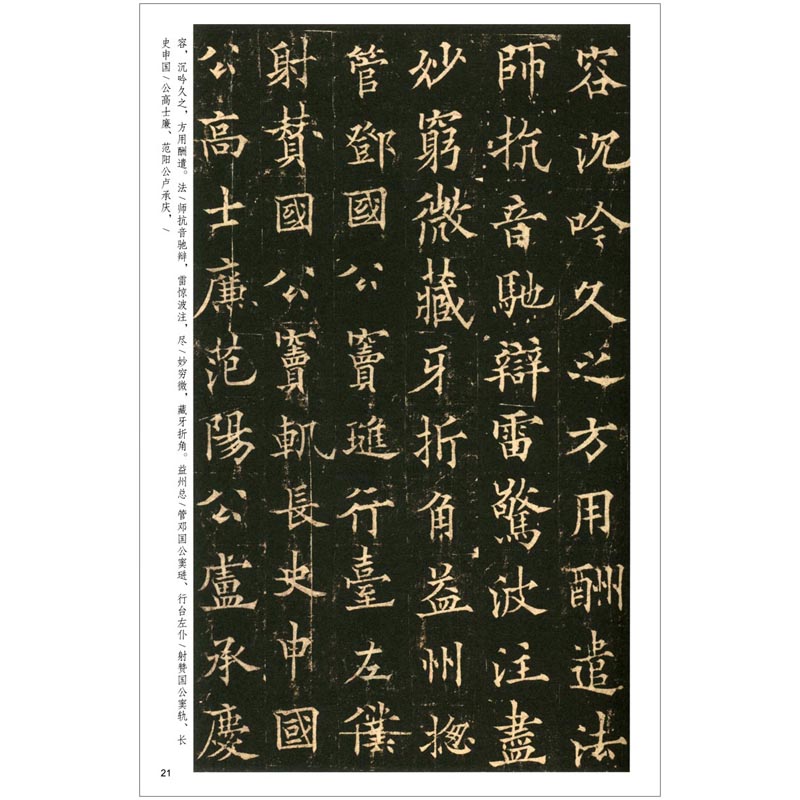 容沉吟久之方用酬遣法
師抗音馳辯雷驚波注盡
妙窮微藏牙折角益州揔
管鄧國公竇璡行臺左僕
射賛國公竇軌長史申國
公高士廉范陽公盧承慶
容，沉吟久之，方用酬遣。法/师抗音驰辩，雷惊波注，尽/妙穷微，藏牙折角。益州总/管邓国公窦琎、行台左仆/射赞国公窦轨、长
史申国/公高士廉、范阳公卢承庆，/
21